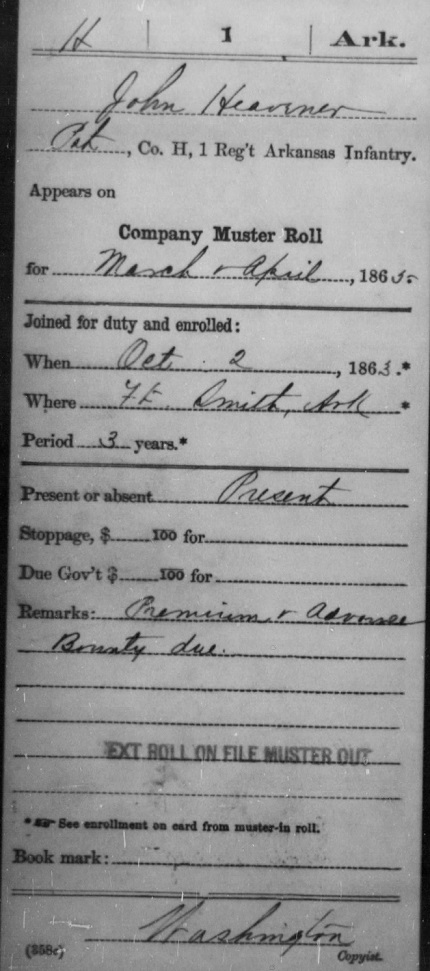 H | 1 | Ark.
John Heavener
Pvt, Co. H, 1 Reg't Arkansas Infantry.
Appears on
Company Muster Roll
for March & April, 1865.
Joined for duty and enrolled:
When Oct. 2, 1863.*
Where Ft. Smith, Ark *
Period 3 years.*
Present or absent Present
Stoppage, $ 100 for
Due Gov't $ 100 for
Remarks: Premium & Advance
Bounty due.
EXT ROLL ON FILE MUSTER OUT
* See enrollment on card from muster-in roll.
Book mark:
Washington
(358c) Copyist.